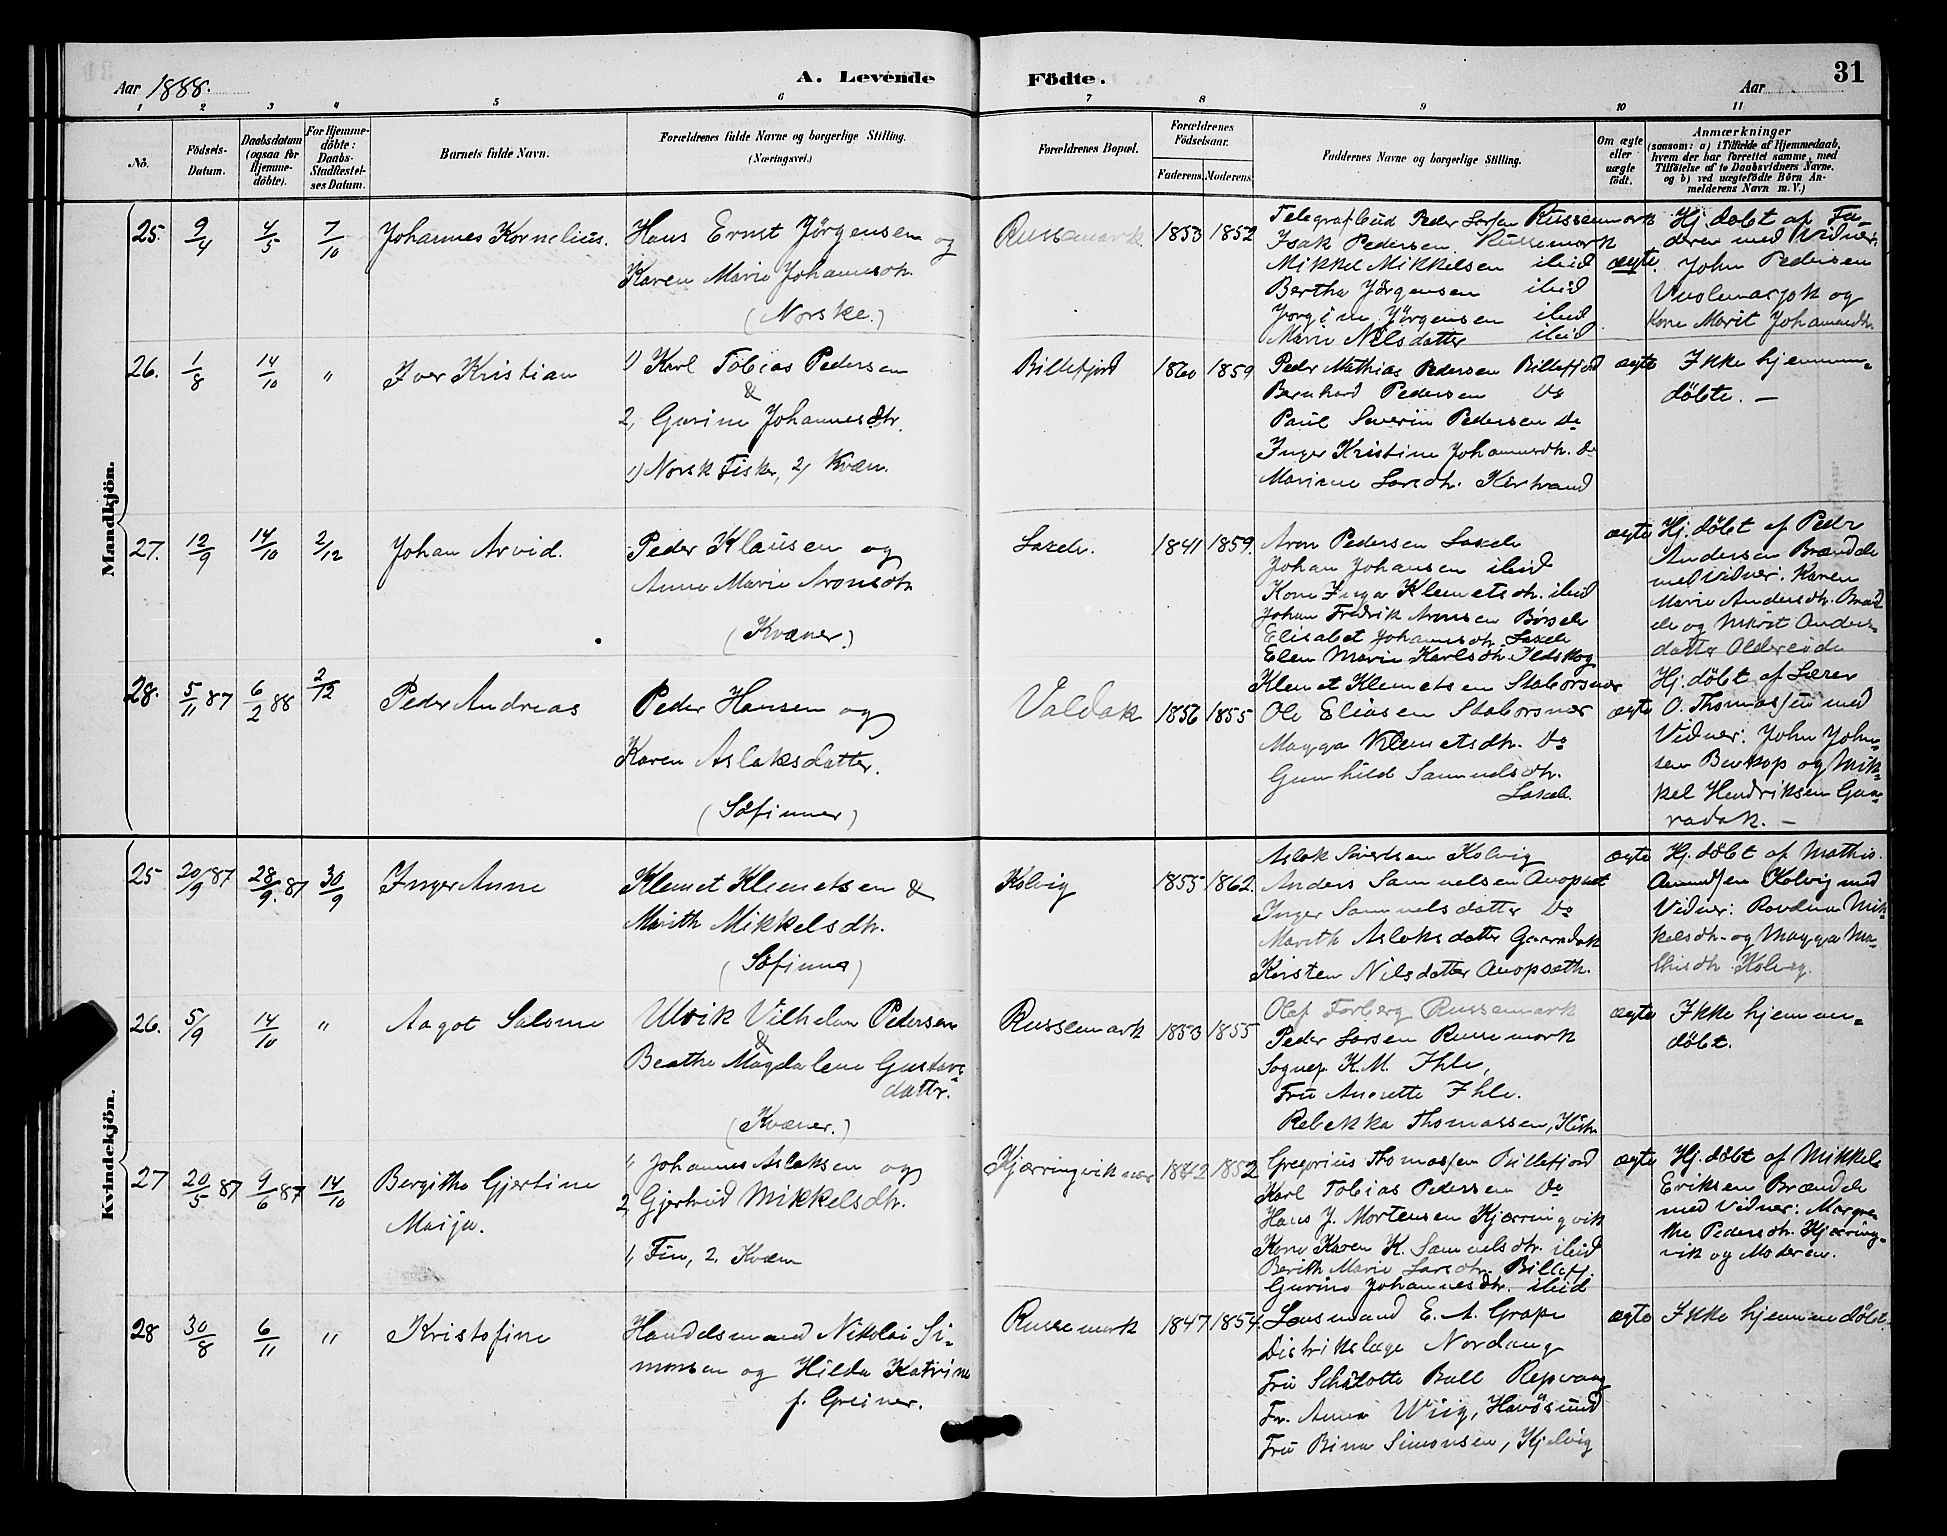 Aar 1888.
A. Levende Födte.
Aar
31
1 2 3 4 5 6 7 8 9 10 11
No.
Födsels-Datum.
Daabsdatum (ogsaa for Hjemmedöbte).
For Hjemmedöbte: Daabs-Stadfæstelses Datum.
Barnets fulde Navn.
Forældrenes fulde Navne og borgerlige Stilling. (Næringsvei.)
Forældrenes Bopæl.
Forældrenes Födselsaar.
Faderens. Moderens.
Faddernes Navne og borgerlige Stilling.
Om ægte eller uægte födt.
Anmærkninger
(saasom: a) i Tilfælde af Hjemmedaab,
hvem der har forrettet samme, med
Tilföielse af to Daabsvidners Navne.
og b) ved uægtefödte Börn An-
melderens Navn m. V.)
Mandkjön.
25. 9/4 4/5 7/10 Johannes Kornelius.
Hans Ernst Jörgensen og
Karen Marie Johannesdtr.
(Norske.)
Russemark 1853 1852
Telegrafbud Peder Larsen Russemark
Isak Pedersen Russemark
Mikkel Mikkelsen ibid
Bertha Jörgensen ibid
Jorgine Jörgensen ibid
Marie Nilsdatter ibid
ægte.
Hj. döbt af Fa-
deren med Vidner:
John Pedersen
og
Kone Marit Johannesdtr.
26. 1/8 14/10 " Iver Kristian
1) Karl Tobias Pedersen
&
2, Gurine Johannesdtr.
1) Norsk Fisker, 2) Kvæn.
Billefjord 1860 1859
Peder Mathias Pedersen Billefjord
Bernhard Pedersen Do
Paul Severin Pedersen Do
Inger Kristine Johannesdtr. Do
Mariane Larsdtr. Kistrand
ægte
Ikke hjemme-
döbte. —
27. 12/9 14/10 2/12 Johan Arvid.
Peder Klausen og
Anne Marie Aronsdtr
(Kvæner.)
Laxelv. 1841 1859.
Aron Pedersen Laxelv
Johan Johansen ibid
Kone Inga Klemetsdtr. ibid
Johan Fredrik Aronsen Börselv
Elisabet Johannesdtr. Laxelv
Elen Marie Karlsdtr. Ildskog
ægte
Hj. döbt af Peder
Andersen Brændelv
med Vidner: Karen
Marie Andersdtr. Brænd
elv og Marit Anders-
datter
28. 5/11 87 6/2 88 2/12 Peder Andreas
Peder Hansen og
Karen Aslaksdatter.
(Söfinner)
Valdak 1856 1855
Klemet Klemetsen Staborsnær
Ole Eliasen Staborsnær
Magga Klemetsdtr. Do
Gunhild Samuelsdtr.
Laxelv.
ægte
Hj. döbt af Lærer
O. Thomassen med
Vidner: John John-
sen og Mik-
kel Hendriksen Gaa-
radak. —
Kvindekjön.
25 20/9 87 28/9. 87 30/9 Inger Anne
Klemet Klemetsen &
Marith Mikkelsdtr.
(Söfinne)
Kolvig 1855 1862.
Aslak Sivertsen Kolvig
Anders Samuelsen
Inger Samuelsdatter Do
Marith Aslaksdatter Gaaradak
Kirsten Nilsdatter
ægte
Hj. döbt af Mathis
Amundsen Kolvig med
Vidner: Ravdna Mik-
kelsdtr. og Magga Ma-
thisdtr. Kolvig.
26. 5/9 14/10 " Aagot Salome
Ulrik Vilhelm Pedersen
&
Beathe Magdalene Gustavs-
dattr.
(Kvæner.)
Russemark 1853 1855
Olaf Forberg Russemark
Peder Larsen Russemark
Sognep. K. M. Ihle,
Fru Annette Ihle.
Rebekka Thomassen, Kistr.
ægte
Ikke hjemme-
döbt.
27 20/5 87 9/6 87 14/10 Bergithe Gjertine
Maija.
1, Johannes Aslaksen og
2, Gjertrud Mikkelsdtr.
1, Fin, 2. Kvæn
Kjærringviknær 1842 1852
Gregorius Thomassen Billefjord
Karl Tobias Pedersen Do
Hans J. Mortensen Kjærringvik
Kone Karen K. Samuelsdtr. ibid
Berith Marie Larsdtr. Billefj.
Gurine Johannesdtr. ibid
ægte
Hj. döbt af Mikkel
Eriksen Brændelv
med Vidner: Margre-
the Pedersdtr. Kjærring-
vik og Moderen.
28 30/8 6/11 " Kristofine
Handelsmand Nikolai Si-
monsen og Hilda Katrine
f. Greiner.
Russemark 1847 1854.
Lensmand E. A. Grape
Distriktslæge Nordang
Fru Schalotte Ball Repvaag
Fr. Anna Wiig, Havösund
Fru Bina Simonsen, Kjelvig
ægte
Ikke hjemmedöbt.